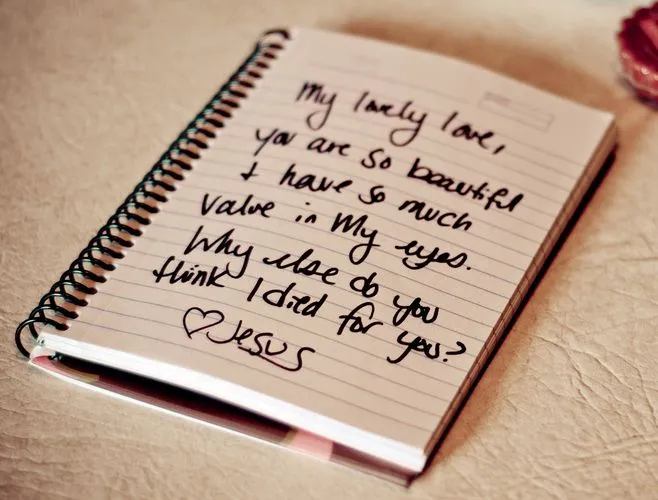 My lovely love,
you are so beautiful
& have so much
value in my eyes.
Why else do you
think I died for you?
♡ Jesus